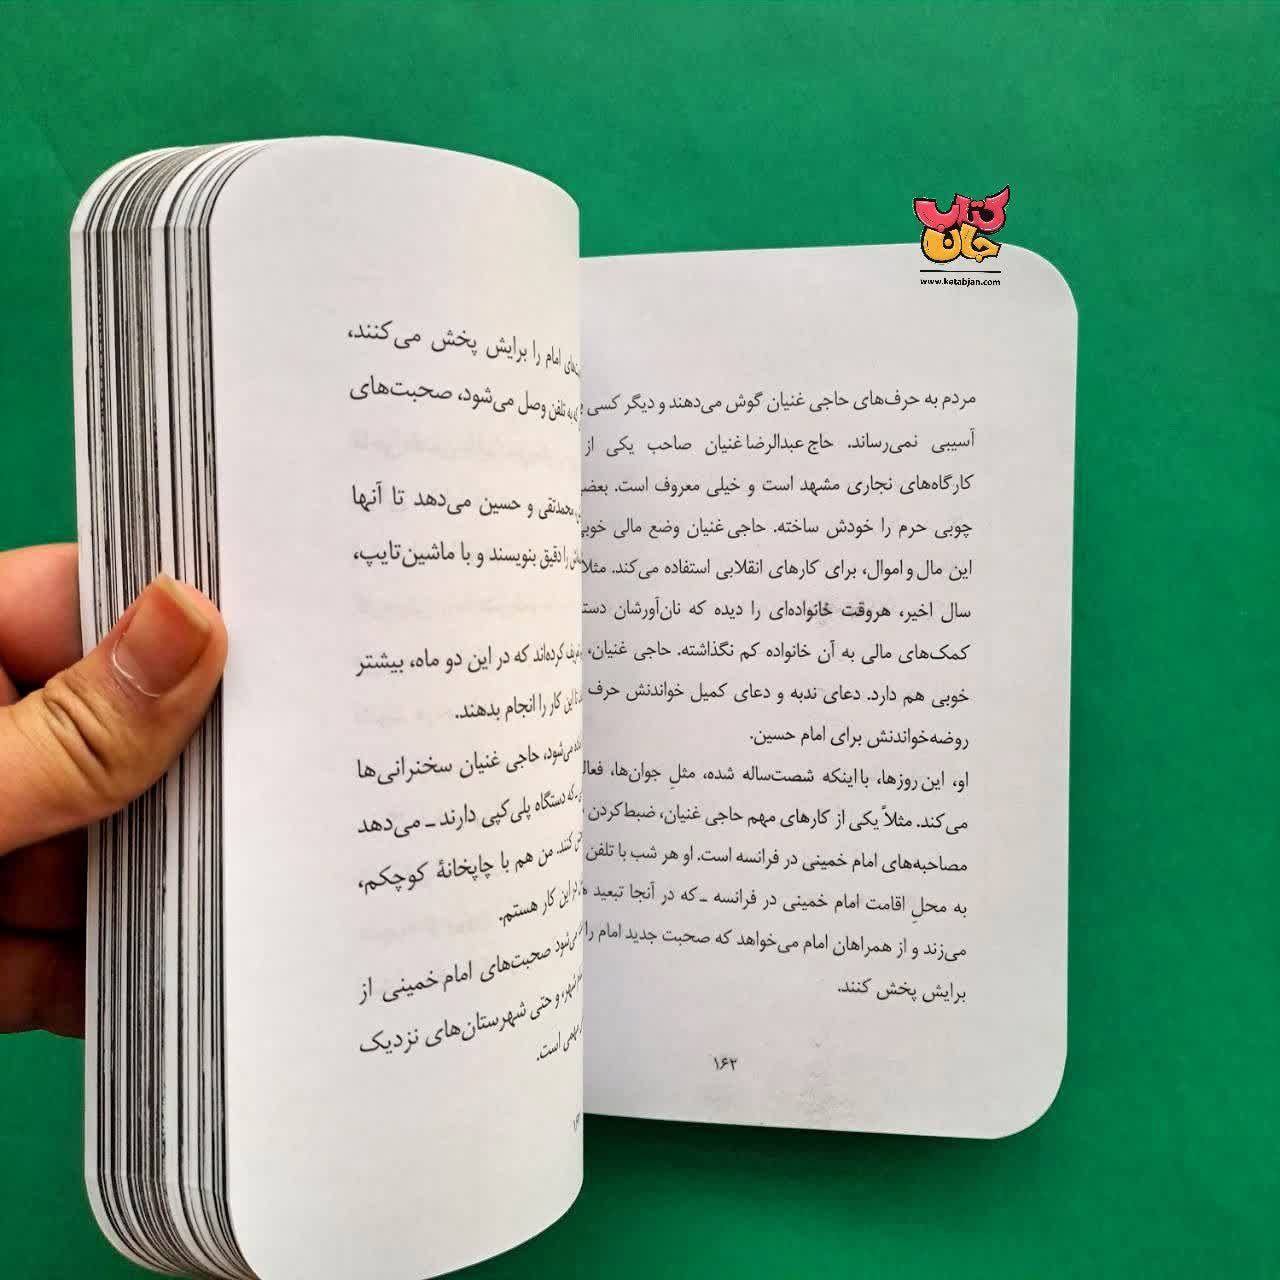 کتاب
جان
www.ketabjan.com
مردم به حرف‌های حاجی غنیان گوش می‌دهند و دیگر کسی
آسیبی نمی‌رساند. حاج عبدالرضا غنیان صاحب یکی از
کارگاه‌های نجاری مشهد است و خیلی معروف است.
چوبی حرم را خودش ساخته. حاجی غنیان وضع مالی
این مال و اموال، برای کارهای انقلابی استفاده می‌کند. مثلاً
سال اخیر، هروقت خانواده‌ای را دیده که نان‌آورشان
کمک‌های مالی به آن خانواده کم نگذاشته. حاجی غنیان،
خوبی هم دارد. دعای ندبه و دعای کمیل خواندنش حرف
روضه‌خواندنش برای امام حسین.
او، این روزها، با اینکه شصت‌ساله شده، مثلِ جوان‌ها،
می‌کند. مثلاً یکی از کارهای مهم حاجی غنیان، ضبط‌کردن
مصاحبه‌های امام خمینی در فرانسه است. او هر شب با تلفن
به محلِ اقامت امام خمینی در فرانسه ـ که در آنجا تبعید
می‌زند و از همراهان امام می‌خواهد که صحبت جدید امام را
برایش پخش کنند.
۱۶۲
امام را برایش پخش می‌کنند،
به تلفن وصل می‌شود، صحبت‌های
محمدتقی و حسین می‌دهد تا آنها
را دقیق بنویسند و با ماشین‌تایپ،
کرده‌اند که در این دو ماه، بیشتر
تا این کار را انجام بدهند.
می‌شود، حاجی غنیان سخنرانی‌ها
ـ که دستگاه پلی‌کپی دارند ـ می‌دهد
کنند. من هم با چاپخانهٔ کوچکم،
در این کار هستم.
می‌شود صحبت‌های امام خمینی از
شهر، و حتی شهرستان‌های نزدیک
مهمی است.